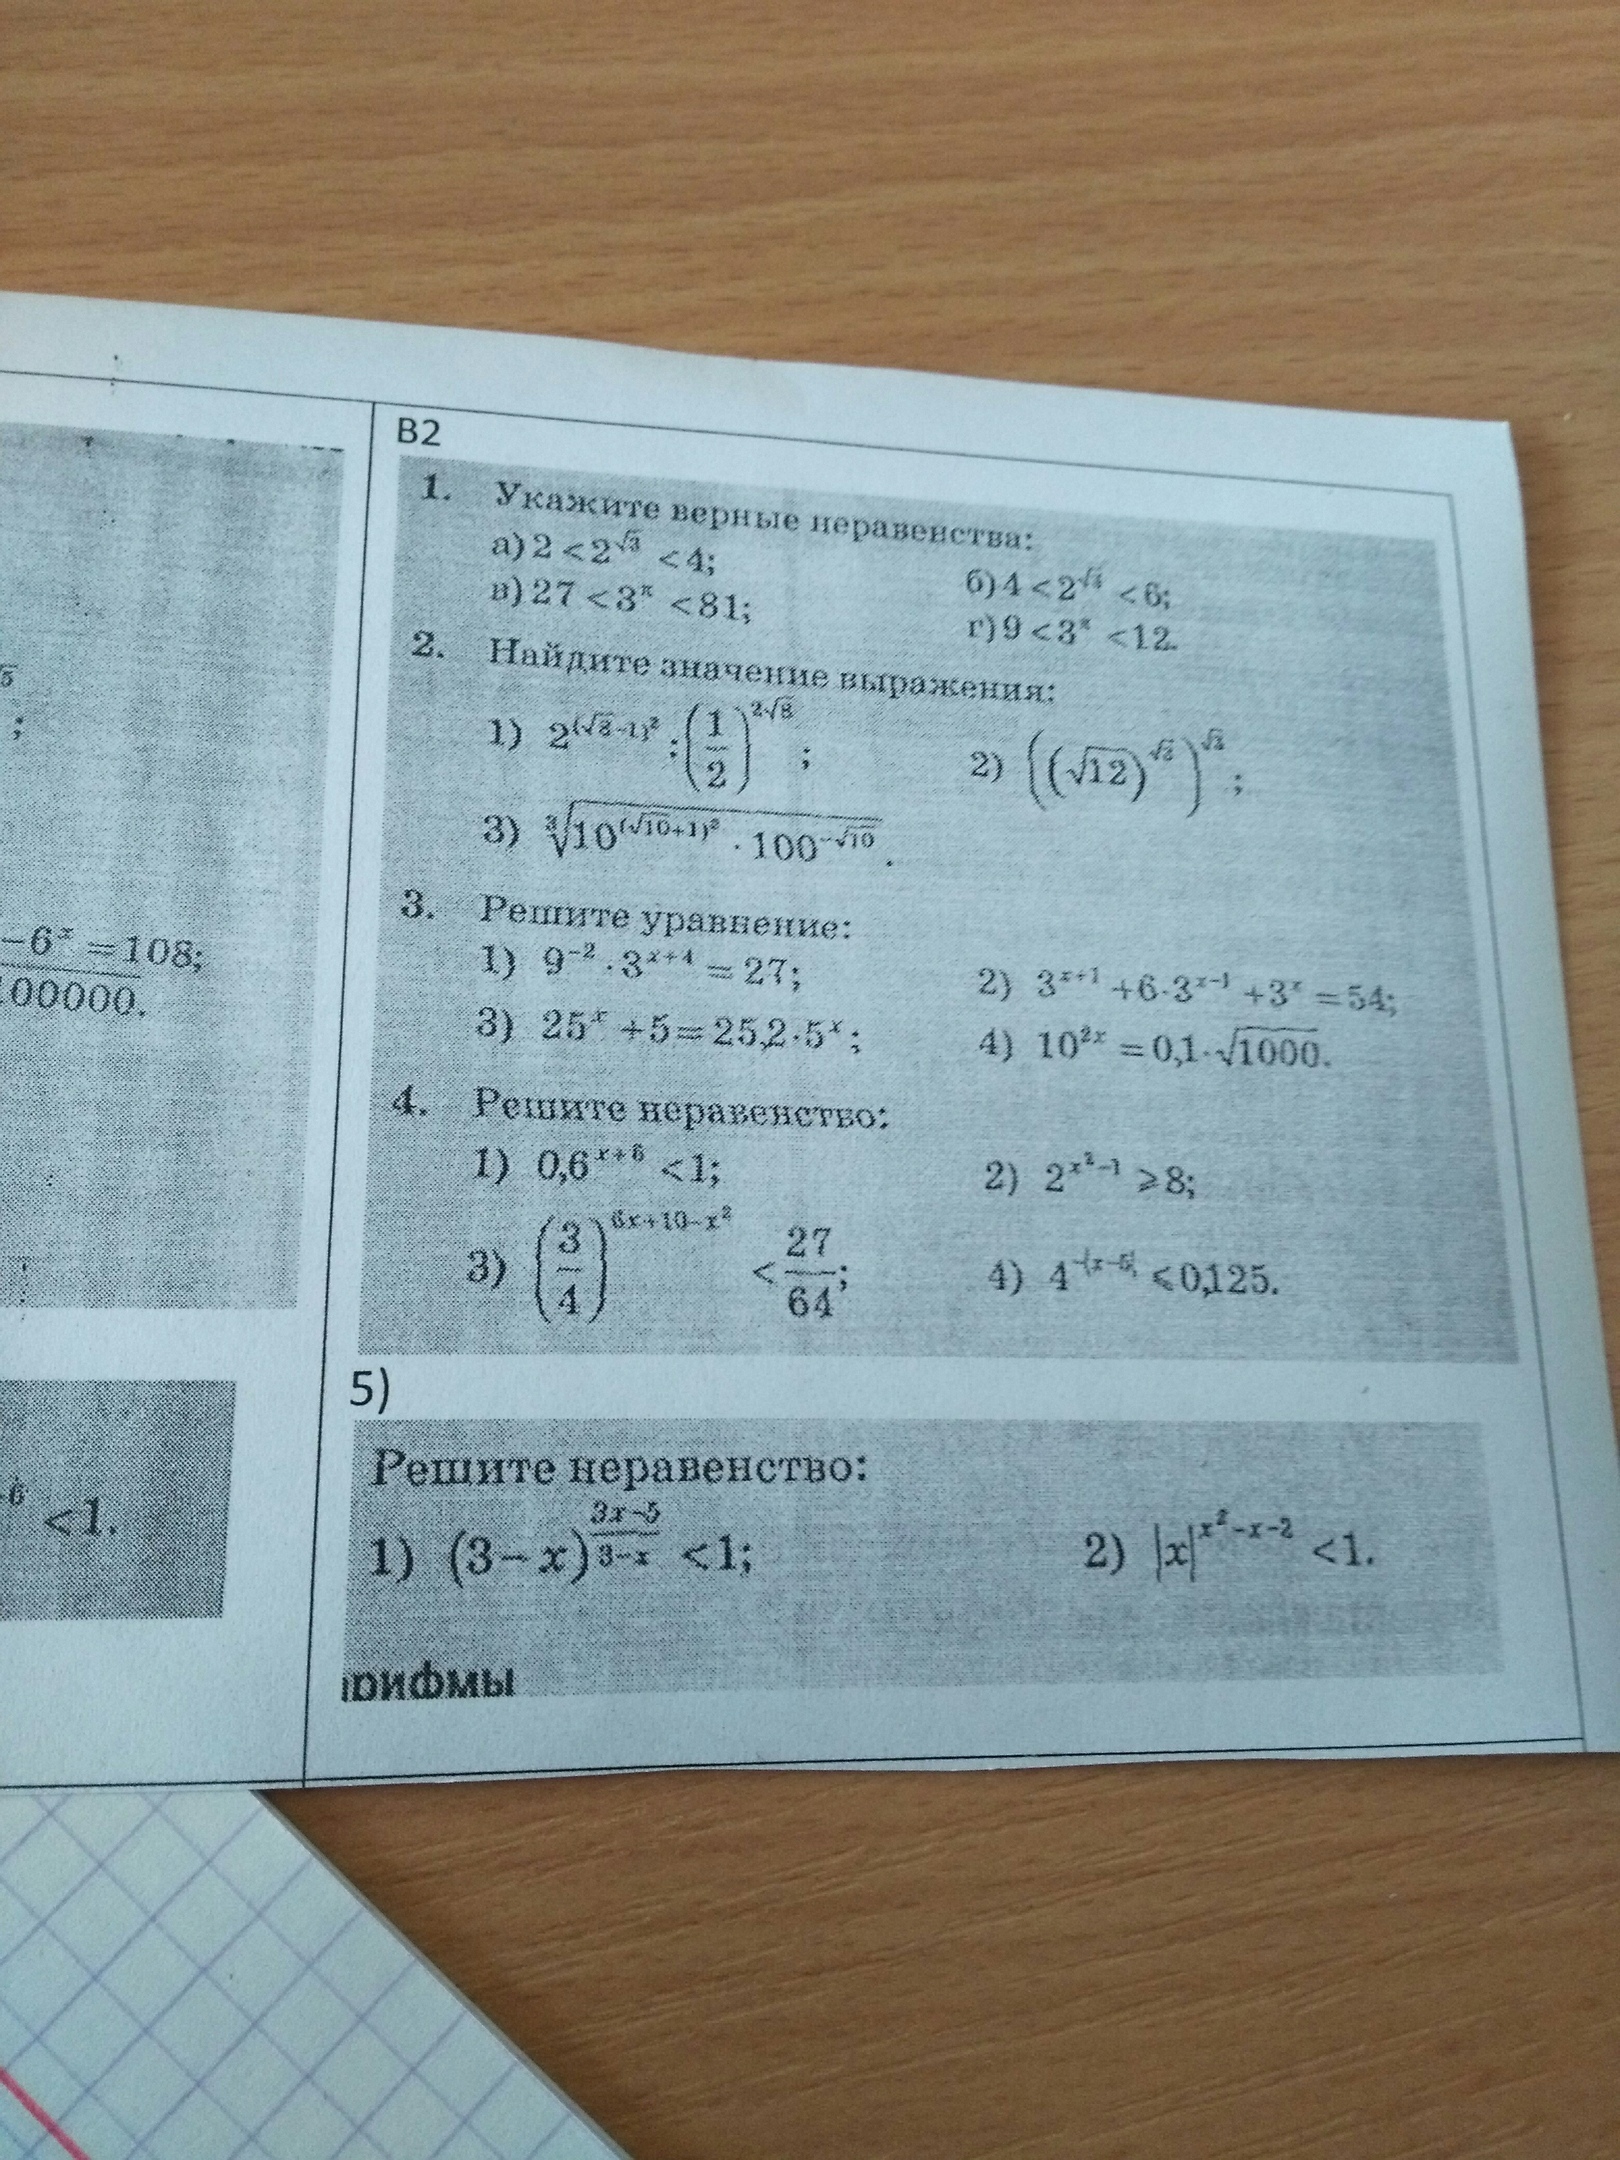 5
;
–6ˣ = 108;
100000.
6 <1.
В2
1. Укажите верные неравенства:
а) 2 < 2^√3 < 4; б) 4 < 2^√4 < 6;
в) 27 < 3^π < 81; г) 9 < 3^π < 12.
2. Найдите значение выражения:
1) 2^(√8–1)² : (1/2)^2√8 ; 2) ((√12)^√2)^√2 ;
3) ∛(10^(√10+1)² · 100^–√10) .
3. Решите уравнение:
1) 9⁻² · 3^x+4 = 27; 2) 3^x+1 + 6 · 3^x–1 + 3^x = 54;
3) 25^x + 5 = 25,2 · 5^x ; 4) 10^2x = 0,1 · √1000.
4. Решите неравенство:
1) 0,6^x+6 < 1; 2) 2^x²–1 ⩾ 8;
3) (3/4)^6x+10–x² < 27/64; 4) 4^–|x–5| ⩽ 0,125.
5)
Решите неравенство:
1) (3 – x)^(3x–5)/(3–x) < 1; 2) |x|^x²–x–2 < 1.
рифмы